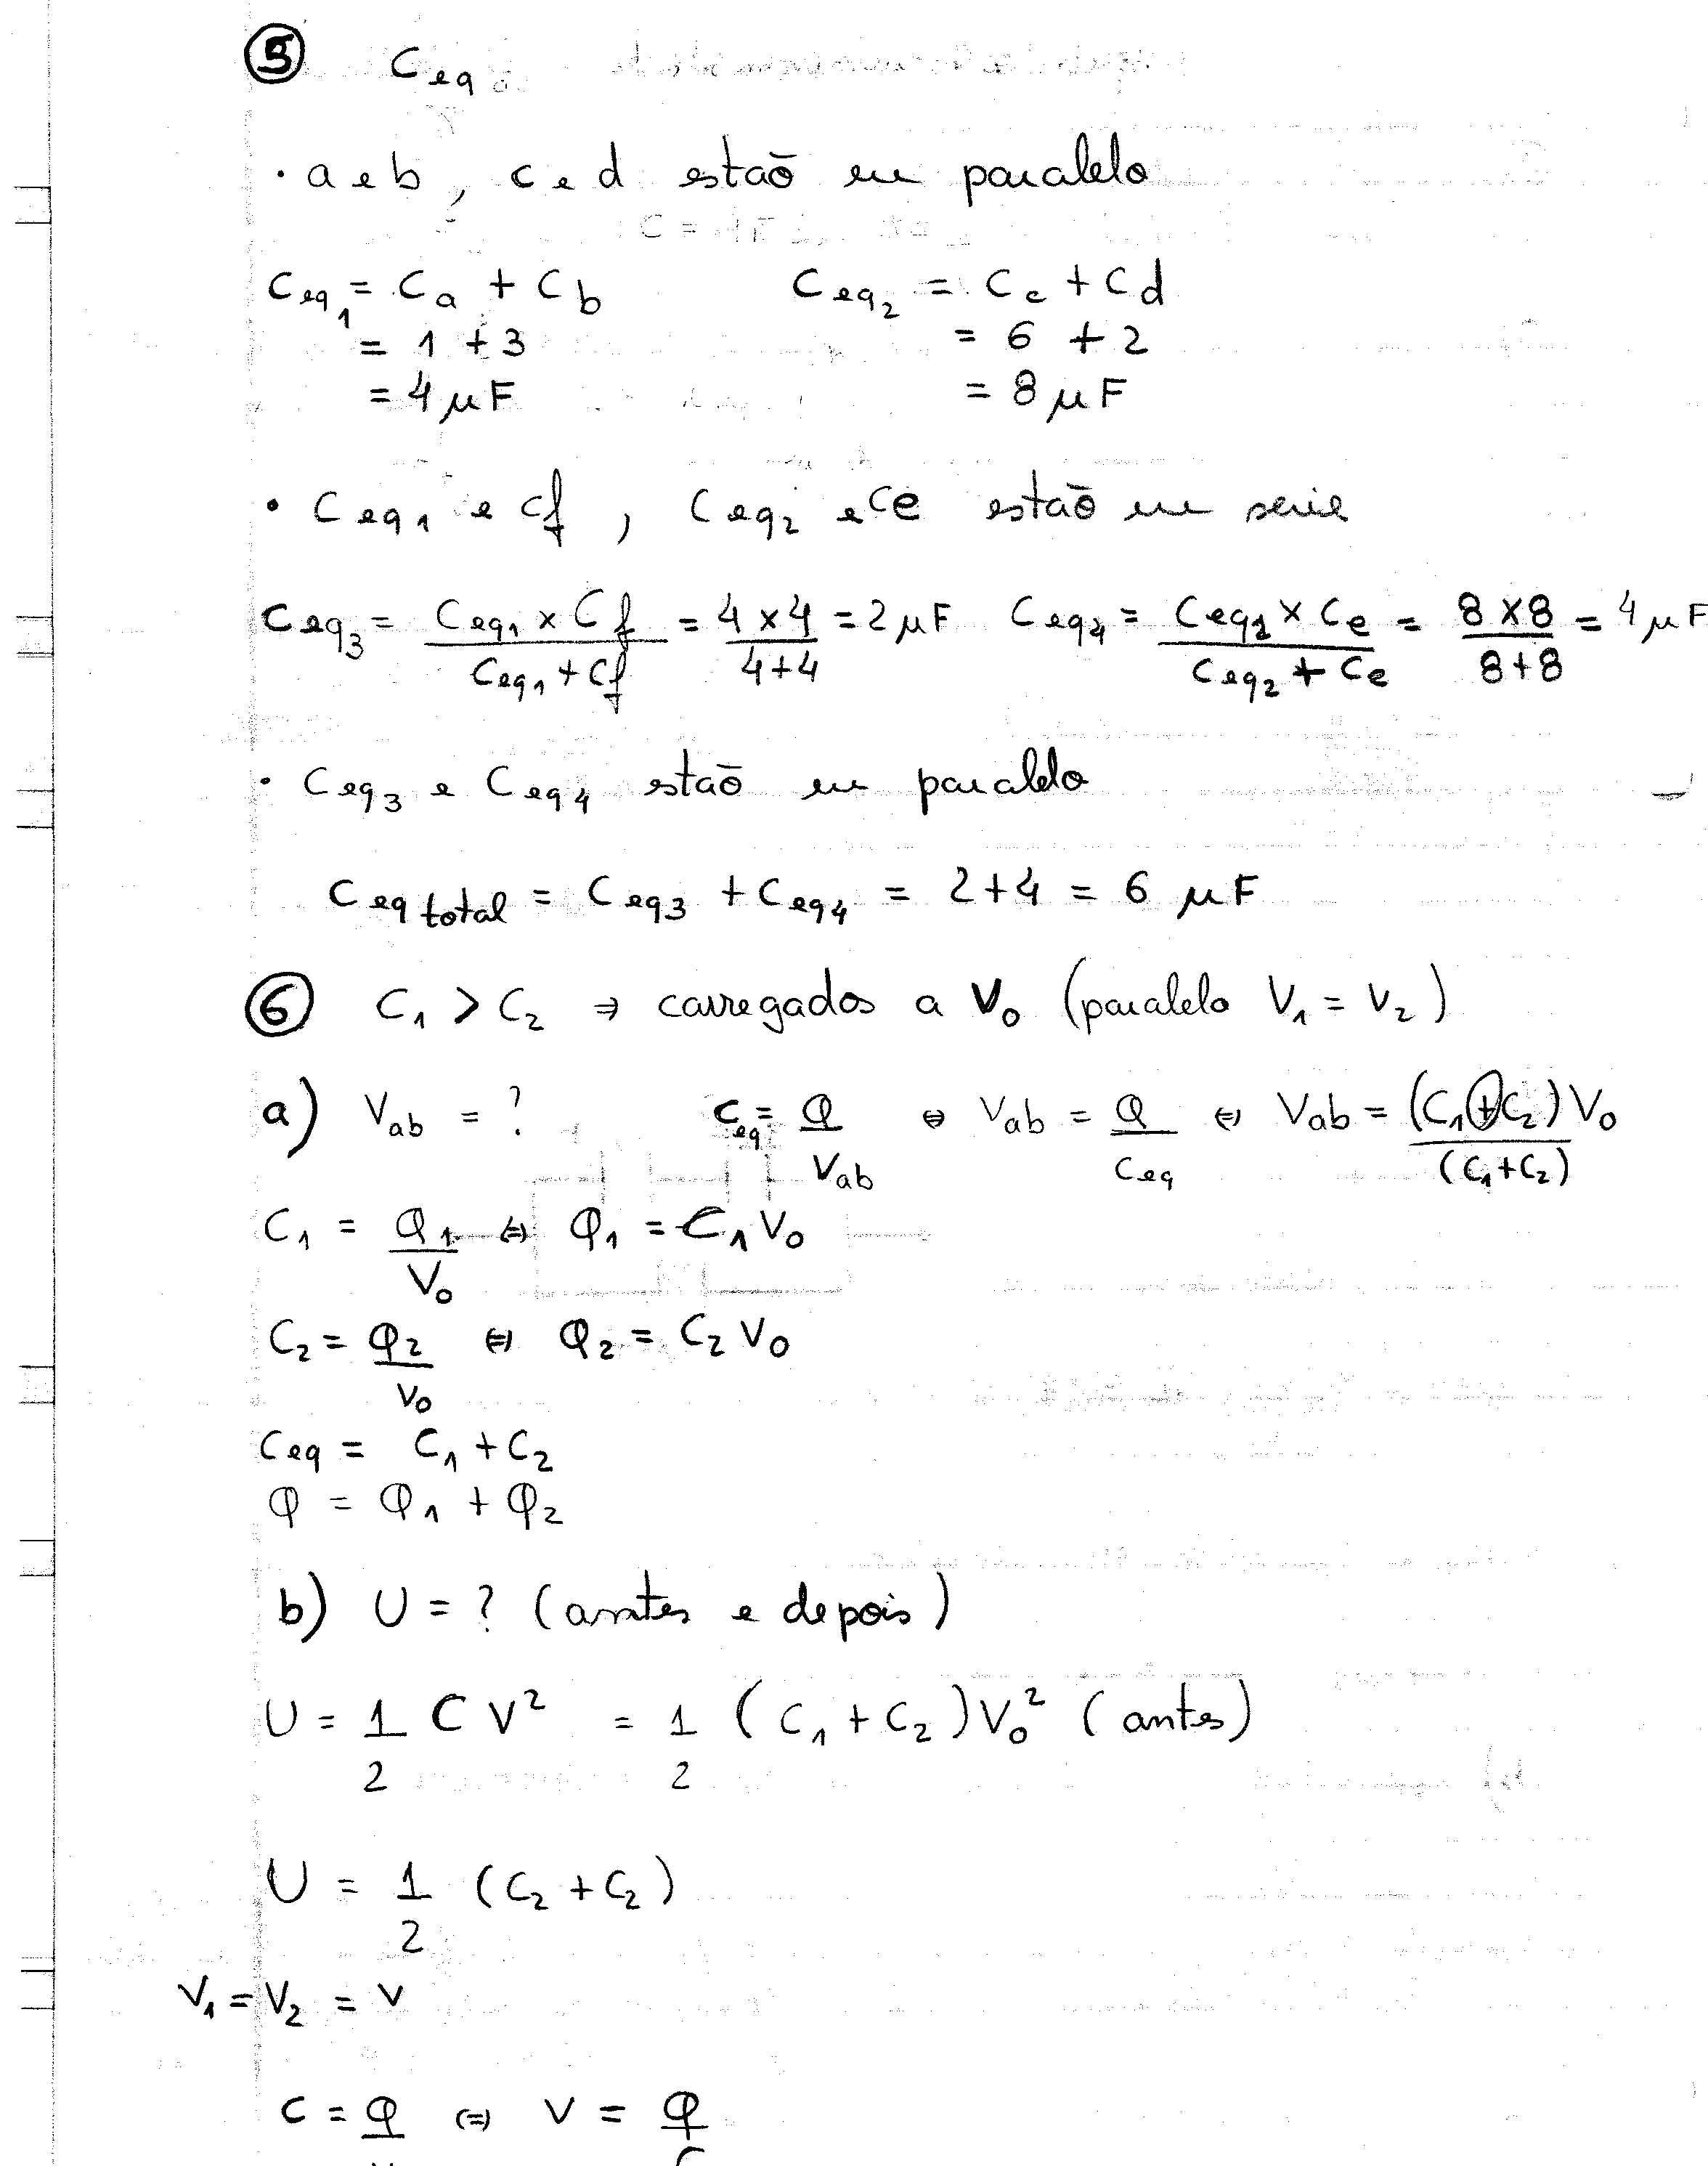 ⑤ Ceq
· a e b , c e d estão em paralelo
Ceq1 = Ca + Cb Ceq2 = Cc + Cd
= 1 + 3 = 6 + 2
= 4 μF = 8 μF
• Ceq1 e Cf , Ceq2 e Ce estão em serie
Ceq3 = Ceq1 × Cf / Ceq1 + Cf = 4 × 4 / 4 + 4 = 2 μF Ceq4 = Ceq2 × Ce / Ceq2 + Ce = 8 × 8 / 8 + 8 = 4 μF
· Ceq3 e Ceq4 estão em paralelo
Ceq total = Ceq3 + Ceq4 = 2 + 4 = 6 μF
⑥ C1 > C2 ⇒ carregados a V0 (paralelo V1 = V2)
a) Vab = ? Ceq = Q / Vab ⇔ Vab = Q / Ceq ⇔ Vab = (C1 + C2) V0 / (C1 + C2)
C1 = Q1 / V0 ⇔ Q1 = C1 V0
C2 = Q2 / V0 ⇔ Q2 = C2 V0
Ceq = C1 + C2
Q = Q1 + Q2
b) U = ? (antes e depois)
U = 1/2 C V² = 1/2 (C1 + C2) V0² (antes)
U = 1/2 (C2 + C2)
V1 = V2 = V
C = Q / V ⇔ V = Q / C